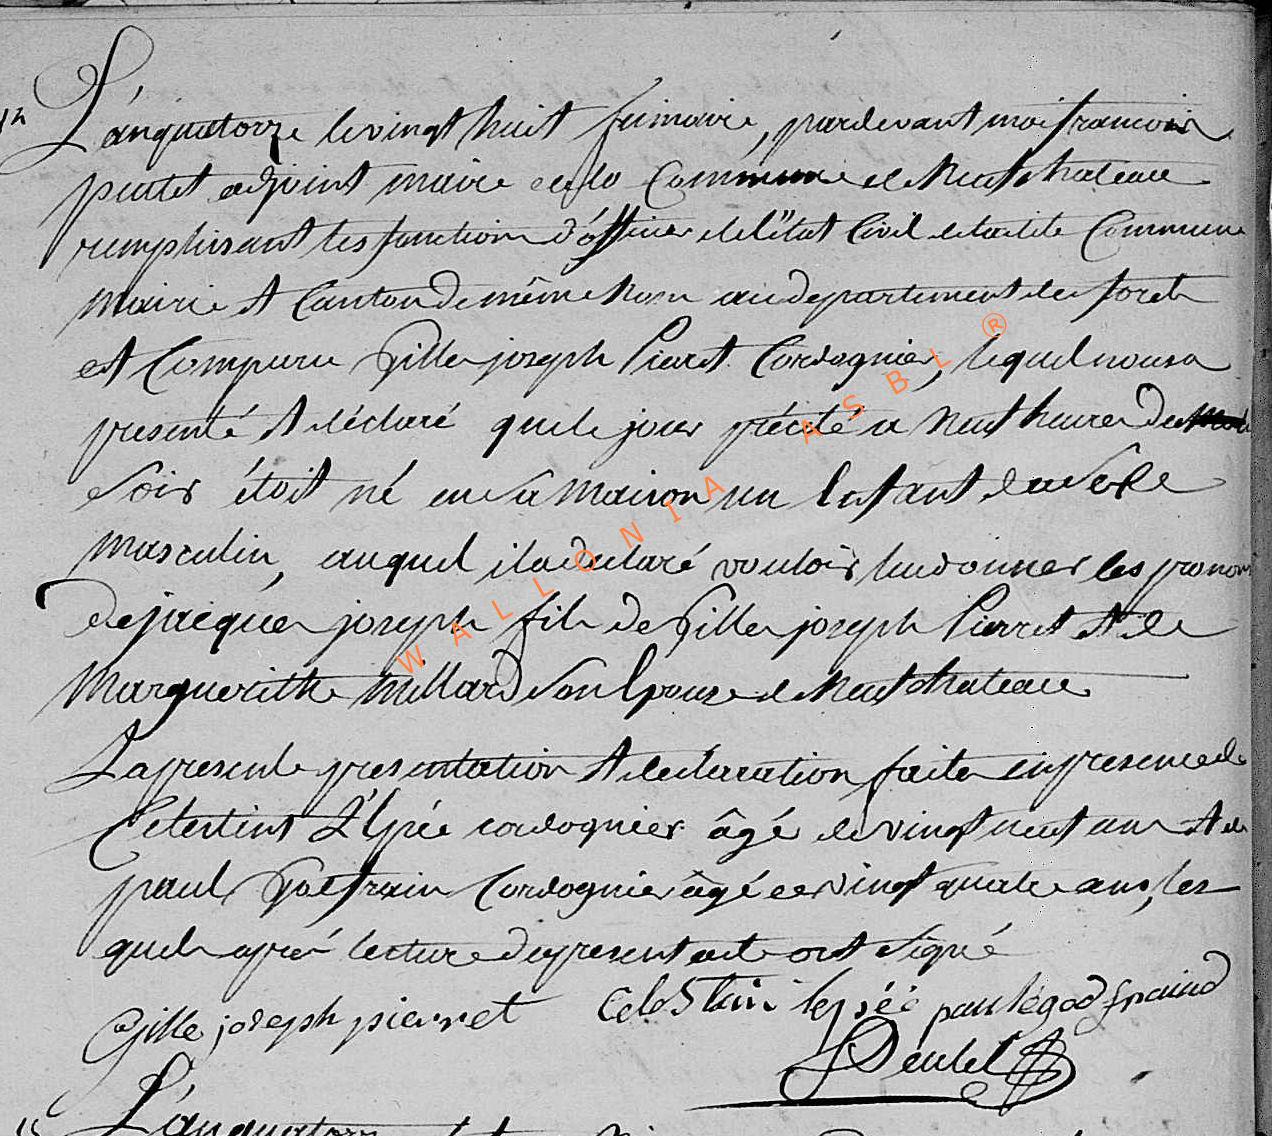 L'anquatorze le vingt huit frimaire, pardevant moi francois
peutet adjoint maire de la Commune de Neufchateau
remplissant les fonction d'officier de l'état Civil de ladite Commune
Mairie et Canton de même Nom au departement des forets
est Comparu Gille joseph Pierret Cordognier, lequel nous a
presenté et déclaré que le jour précité a neuf heure du
soir étoit né en sa maison un Enfant de a Sexe
masculin, auquel il a declaré vouloir lui donner les prenom
de jacque joseph fils de Gille joseph Pierret et de
Marguerithe Millard son Epouze de Neufchateau
La presente presentation et declaration faite en presence de
Celestint L'Epée cordognier âgé de vingt neuf ans et de
paul Godfrain Cordognier âgé de vingt quatre ans, les
quel après lecture du present acte ont signé
Gille joseph pierret Celestain lepéé paul égodfrain
Peutet
L'anquatorze
WALLONIA ASBL ®